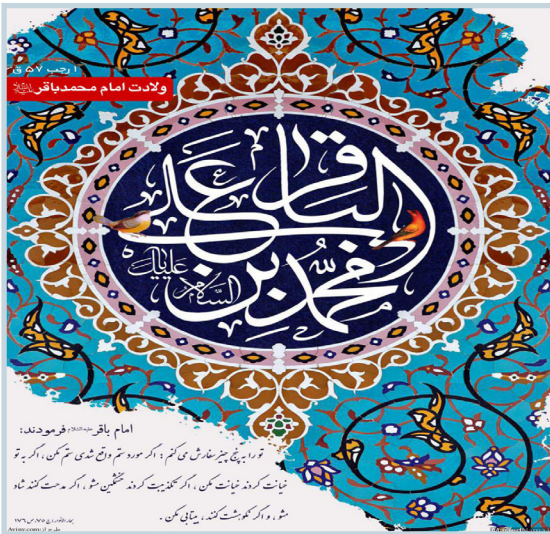 ۱ رجب ۵۷ ق
ولادت امام محمدباقر علیه‌السلام
محمد بن علی الباقر
علیک السلام
امام باقر علیه‌السلام فرمودند:
تو را به پنج چیز سفارش می کنم : اگر مورد ستم واقع شدی ستم مکن ، اگر به تو
خیانت کردند خیانت مکن ، اگر تکذیبت کردند خشمگین مشو ، اگر مدحت کنند شاد
مشو ، و اگر نکوهشت کنند ، بیتابی مکن .
بحارالأنوار، ج ۷۵، ص ۱۶۷
طرح از: Aviny.com